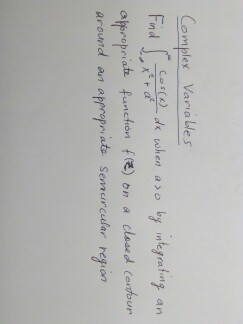 Complex Variables
Find ∫_{-∞}^{∞} cos(x)/(x² + a²) dx when a>0 by integrating an
appropriate function f(z) on a closed contour
around an appropriate semicircular region